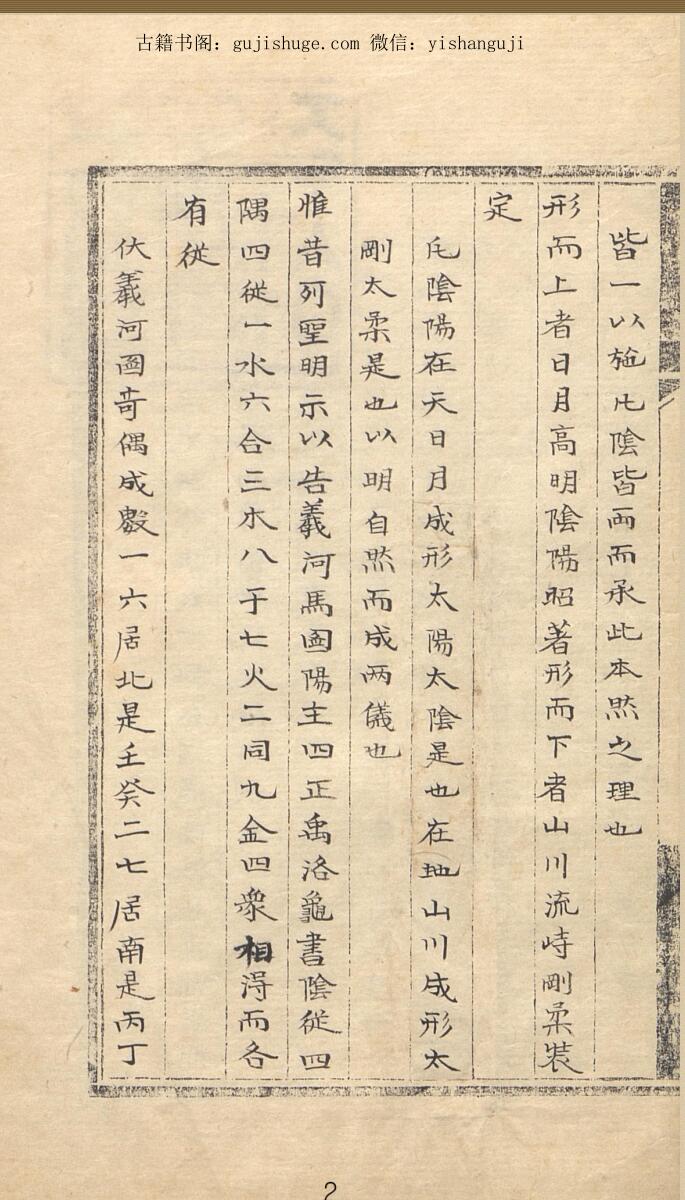 古籍书阁：gujishuge.com 微信：yishanguji
皆一以施凡陰皆兩而承此本然之理也
形而上者日月高明陰陽昭著形而下者山川流峙剛柔裝
定
凡陰陽在天日月成形太陽太陰是也在地山川成形太
剛太柔是也以明自然而成两儀也
惟昔列聖明示以告羲河馬圖陽主四正禹洛龜書陰從四
隅四從一水六合三木八于七火二同九金四衆相得而各
有從
伏羲河圖奇偶成數一六居北是壬癸二七居南是丙丁
2